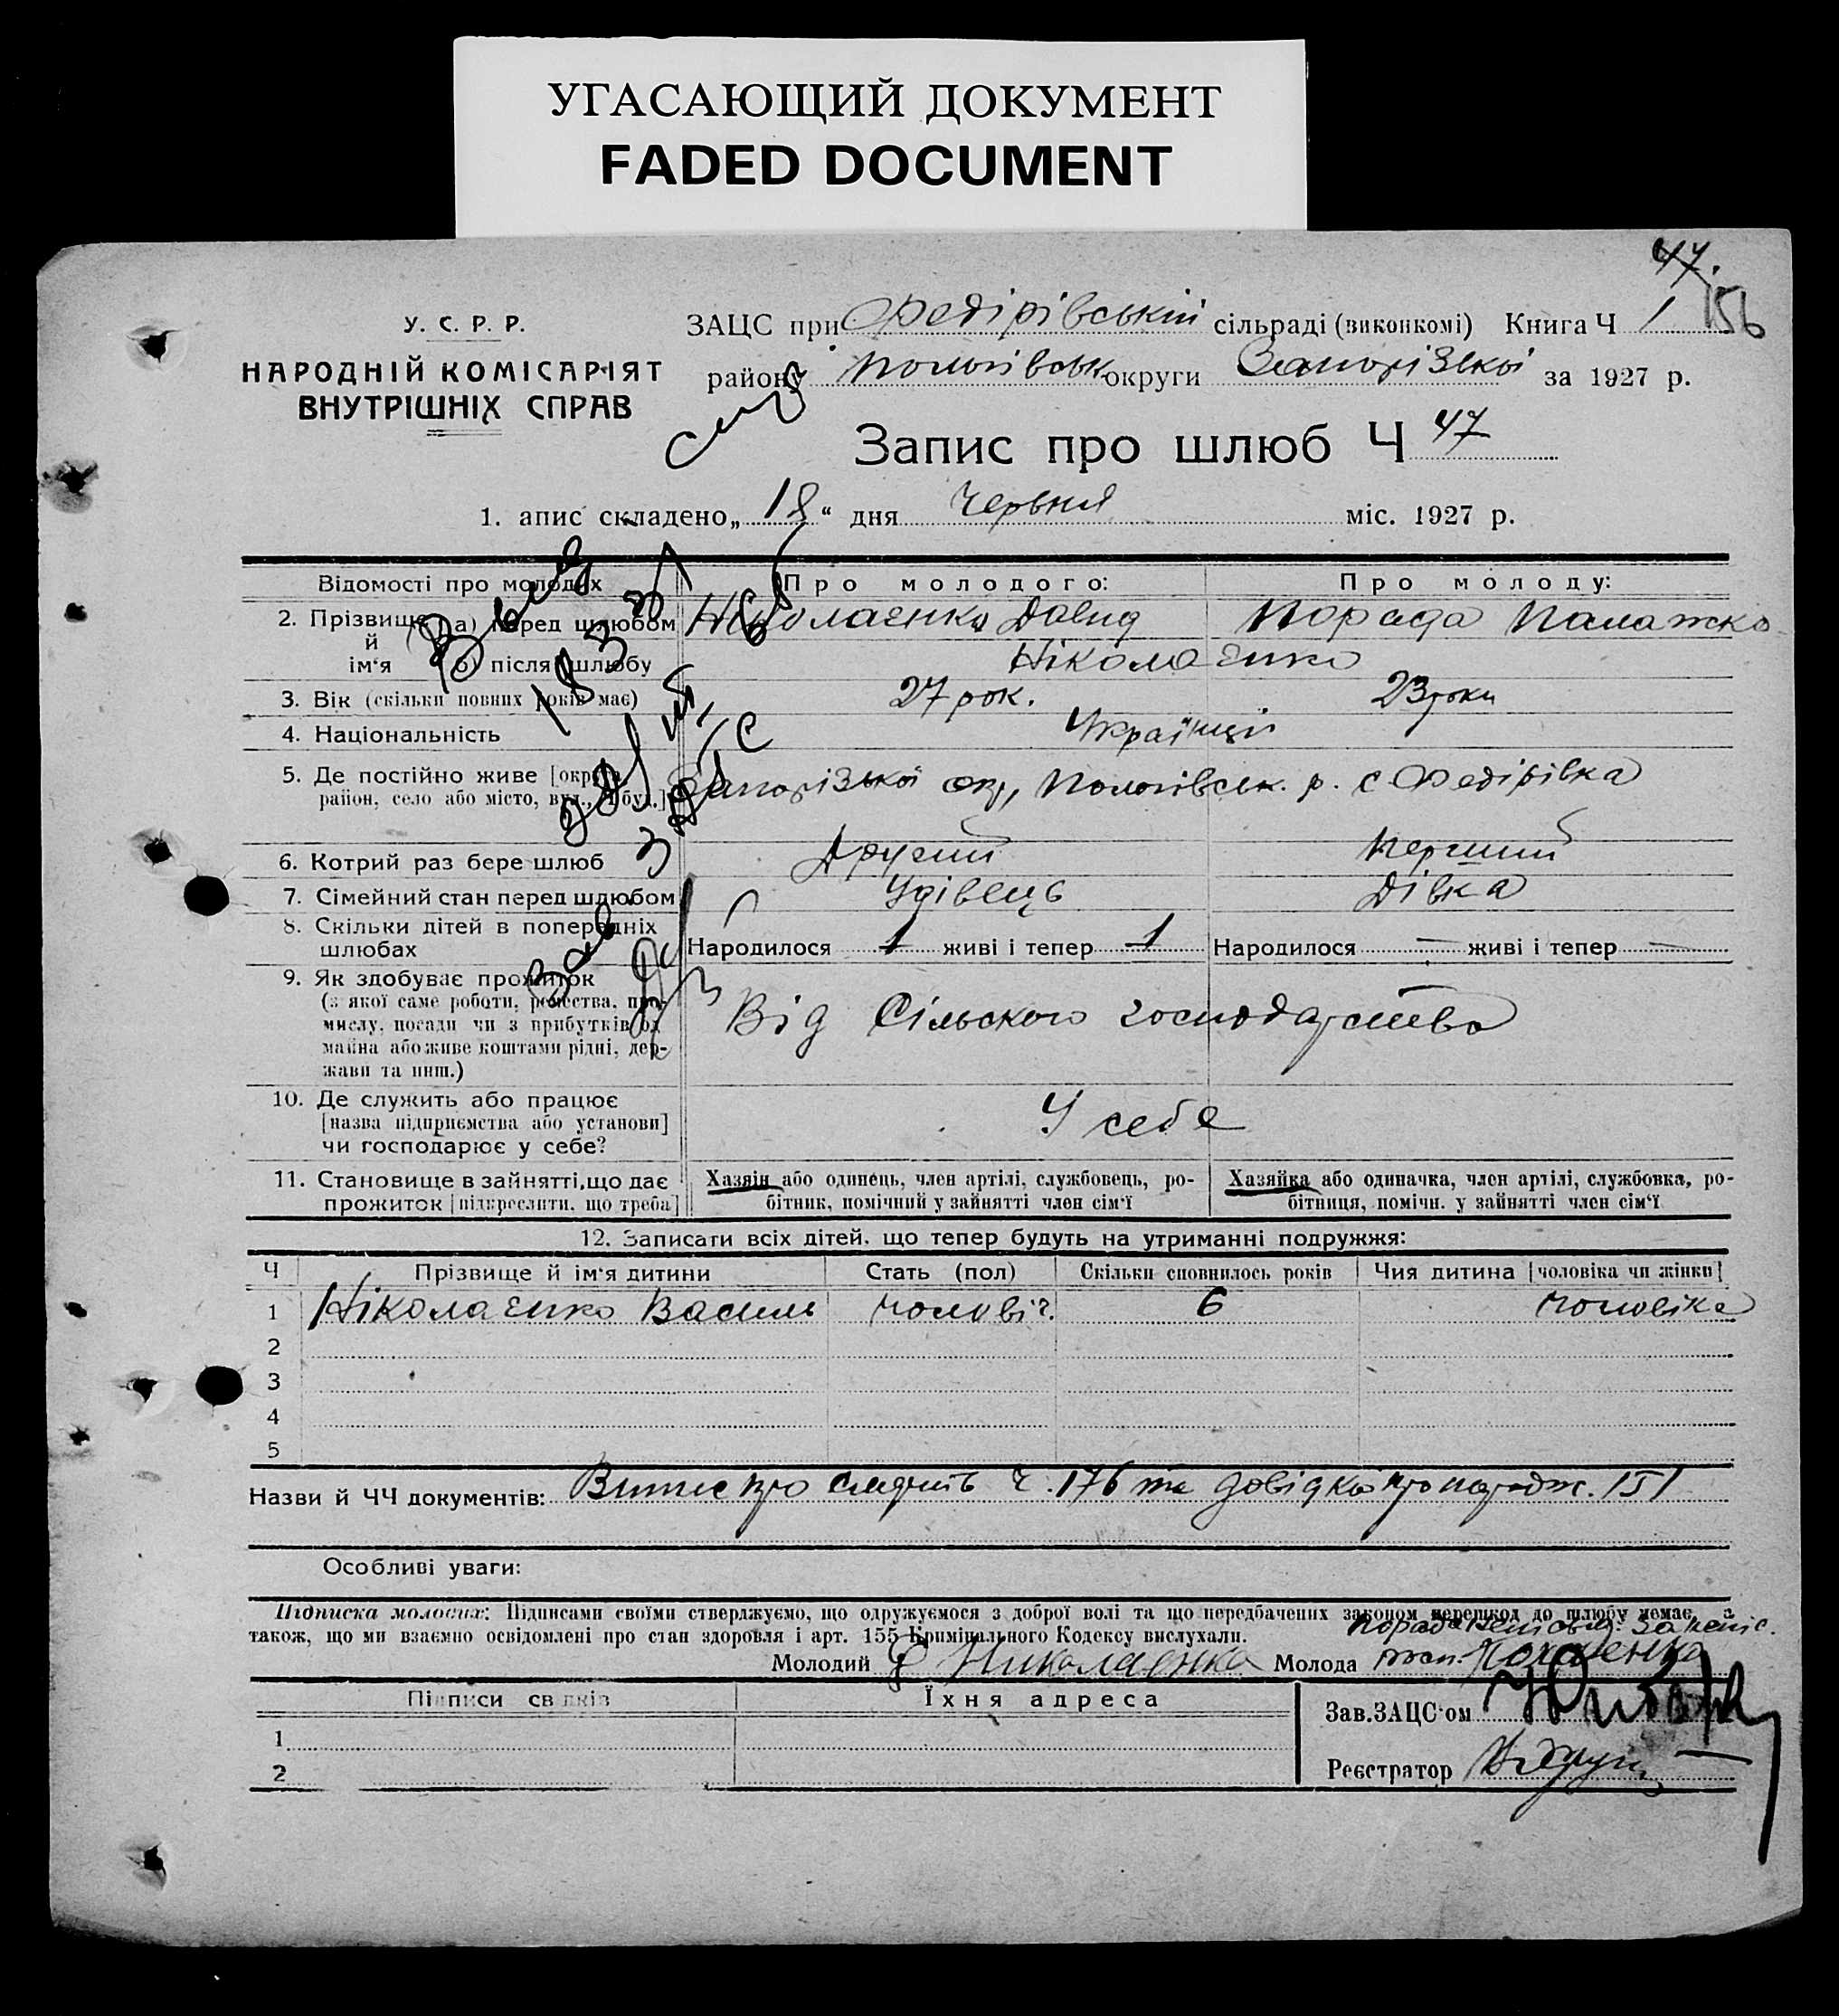 УГАСАЮЩИЙ ДОКУМЕНТ
FADED DOCUMENT
47.
156
У. С. Р. Р.
НАРОДНІЙ КОМІСАРІЯТ
ВНУТРІШНІХ СПРАВ
ЗАЦС при Федірівській сільраді (виконкомі) Книга Ч 1
району Пологівськ округи Запорізької за 1927 р.
Запис про шлюб Ч 47
1. апис складено „ 18 “ дня Червня міс. 1927 р.
Відомості про молодих Про молодого: Про молоду:
2. Прізвище й ім‘я а) перед шлюбом Ніколаєнко Давид Порада Палажка
б) після шлюбу Ніколаєнко
3. Вік (скільки повних років має) 27 рок. 23 роки
4. Національність Українці
5. Де постійно живе [округа, Запорізької окр, Пологівськ. р. с Федірівка
район, село або місто, вул., ч. буд.]
6. Котрий раз бере шлюб Другий Перший
7. Сімейний стан перед шлюбом Удівець Дівка
8. Скільки дітей в попередніх
шлюбах Народилося 1 живі і тепер 1 Народилося — живі і тепер —
9. Як здобуває прожиток
(з якої саме роботи, ремества, про-
мислу, посади чи з прибутків од Від Сільского господарства
майна або живе коштами рідні, дер-
жави та инш.)
10. Де служить або працює
[назва підприємства або установи] У себе
чи господарює у себе?
11. Становище в зайнятті, що дає Хазяїн або одинець, член артілі, службовець, ро- Хазяйка або одиначка, член артілі, службовка, ро-
прожиток [підкреслити, що треба] бітник, помічний у зайнятті член сім‘ї бітниця, помічн. у зайнятті член сім‘ї
12. Записати всіх дітей, що тепер будуть на утриманні подружжя:
Ч Прізвище й ім‘я дитини Стать (пол) Скільки сповнилось років Чия дитина [чоловіка чи жінки]
1 Ніколаєнко Василь чоловіч. 6 чоловіка
2
3
4
5
Назви й ЧЧ документів: Витис про смерть ч. 176 та довідка про народж. 151
Особливі уваги:
Підписка молодих: Підписами своїми стверджуємо, що одружуємося з доброї волі та що передбачених законом перешкод до шлюбу немає, а
також, що ми взаємно освідомлені про стан здоровля і арт. 155 Кримінального Кодексу вислухали.
Порада
Молодий Николаенко Молода
Підписи свідків Їхня адреса
Зав. ЗАЦС‘ом
1
Реєстратор
2